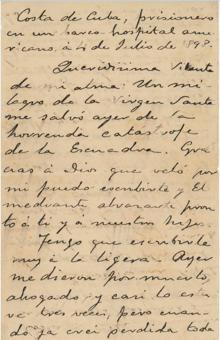 Costa de Cuba, prisionero
en un barco hospital ame-
ricano, á 4 de Julio de 1898.
Queridísima
de mi alma: Un mi-
lagro de la Virgen Santa
me salvó ayer de la
horrenda catástrofe
de la Escuadra. Gra-
cias á Dios que veló por
mi puedo escribirte y El
mediante abrazarte pron-
to á ti y á nuestros hijos.
Tengo que escribirte
muy á la ligera. Ayer
me dieron por muerto,
ahogado y casi lo estu-
ve tres veces, pero cuan-
do ya creí perdida toda